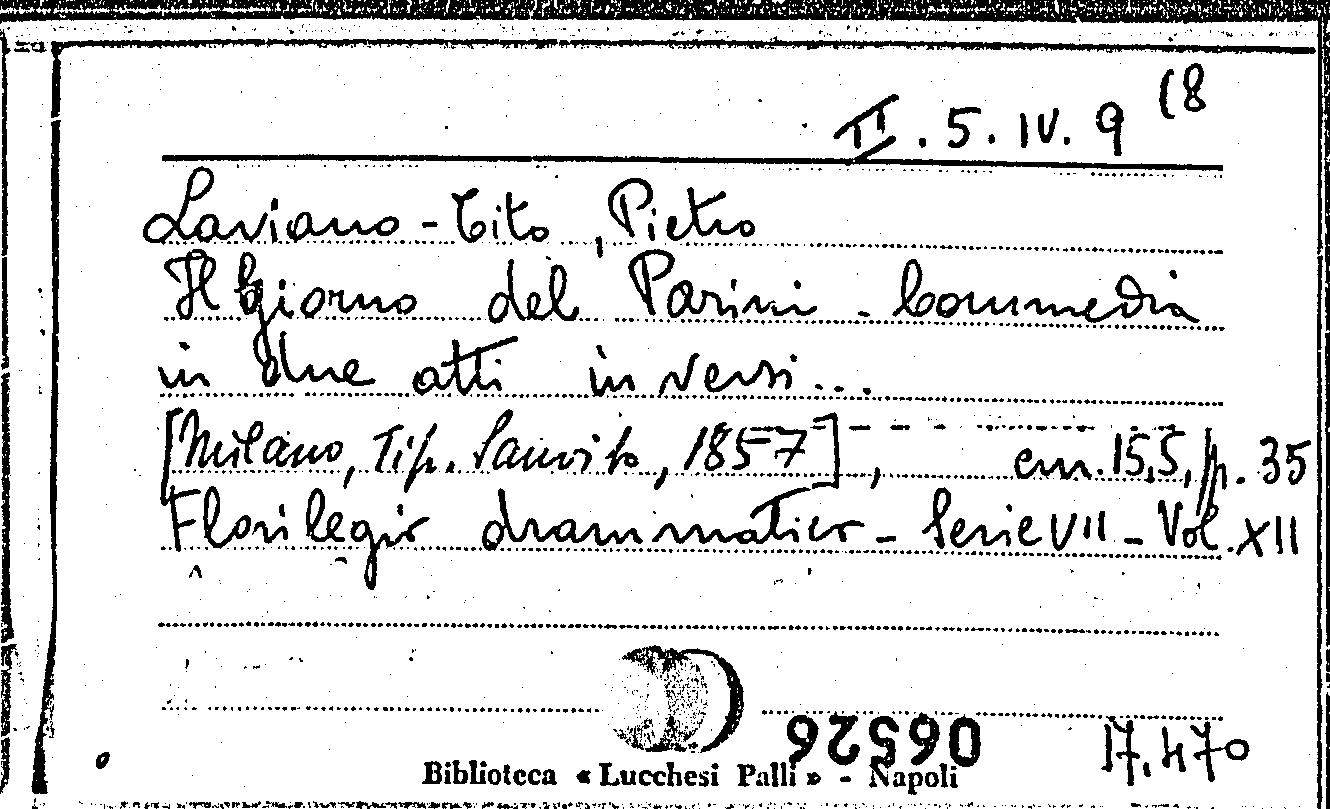 II. 5. IV. 9 (8
Laviano-Tito, Pietro
Il Giorno del Parini - Commedia
in due atti in versi...
[Milano, Tip. Sanvito, 1857], cm. 15,5, p. 35
Florilegio drammatico - Serie VII - Vol. XII
06526
17.470
Biblioteca « Lucchesi Palli » - Napoli